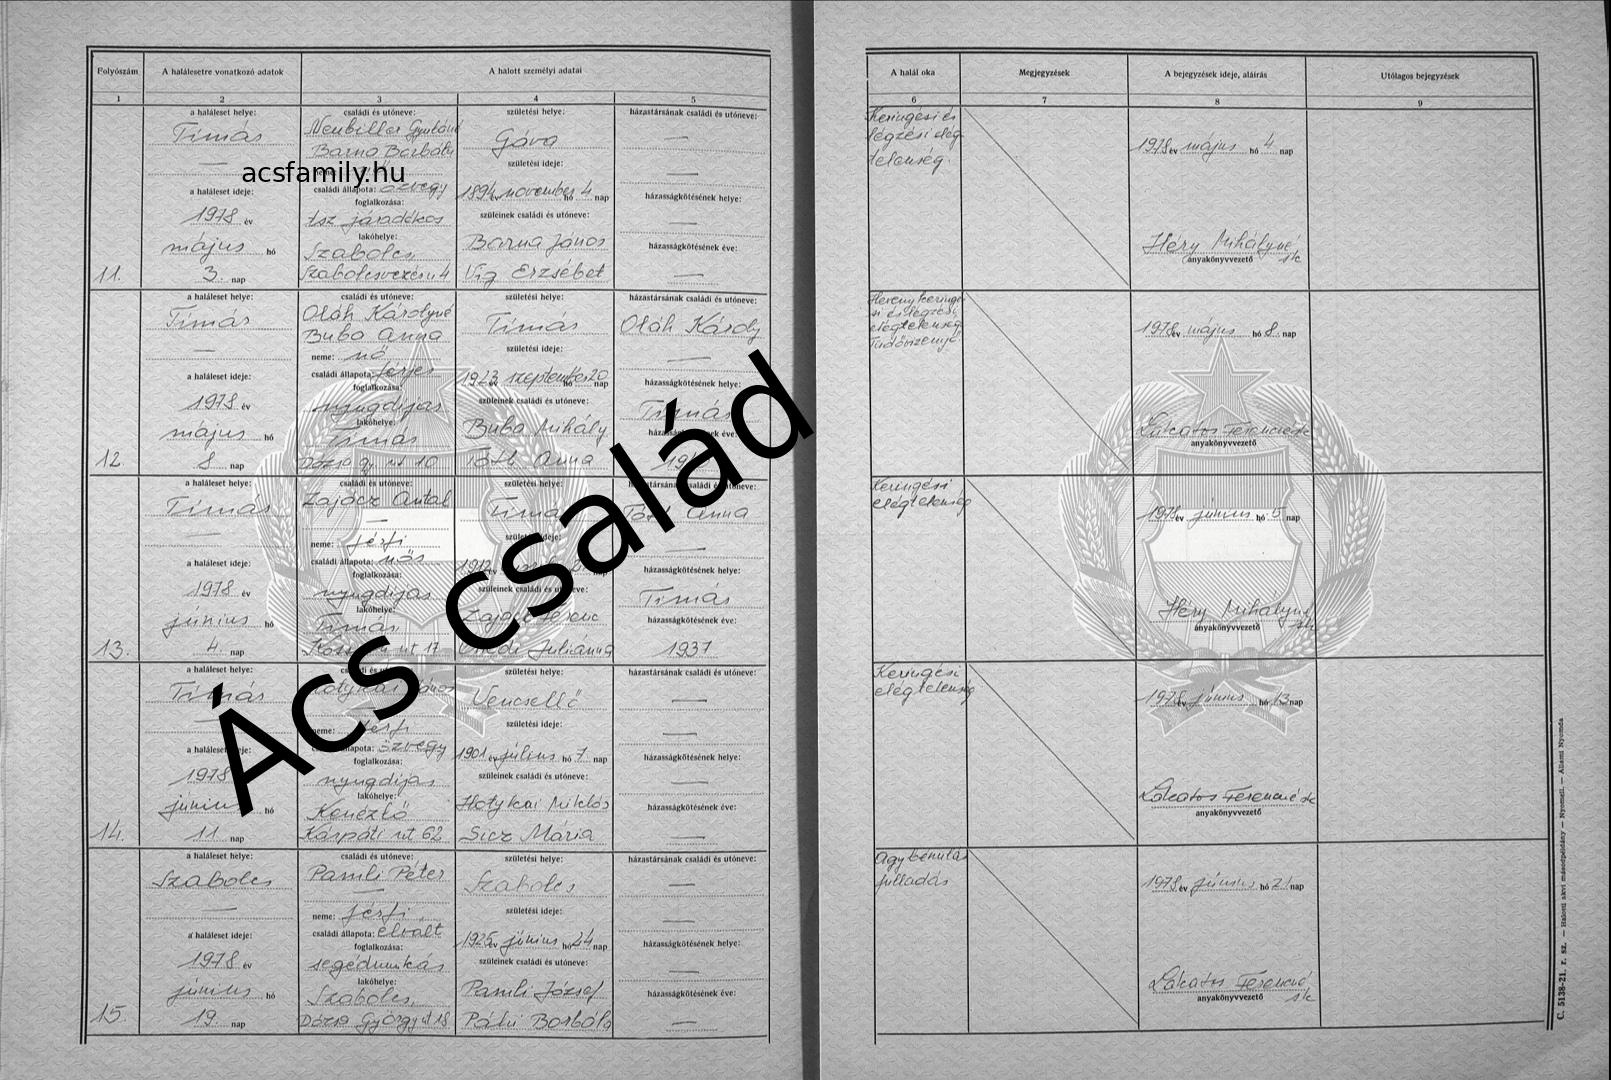 Folyószám
A halálesetre vonatkozó adatok
A halott személyi adatai
1
2
3
4
5
a haláleset helye:
Timás
—
a haláleset ideje:
1978 év
május hó
11. 3. nap
családi és utóneve:
Barna Borbála
családi állapota: özvegy
foglalkozása:
tsz járadékos
lakóhelye:
Szabolcs
születési helye:
Gáva
születési ideje:
1894 november hó 4 nap
szüleinek családi és utóneve:
Barna János
Vig Erzsébet
házastársának családi és utóneve:
—
—
házasságkötésének helye:
—
házasságkötésének éve:
—
a haláleset helye:
Timás
—
a haláleset ideje:
1978 év
május hó
12. 8 nap
családi és utóneve:
Oláh Károlyné
Buba Anna
neme: nő
családi állapota: férjes
foglalkozása:
nyugdíjas
lakóhelye:
Timás
Dózsa Gy. út 10
születési helye:
Timás
születési ideje:
1923 szeptember 20 nap
szüleinek családi és utóneve:
Buba Mihály
Tóth Anna
házastársának családi és utóneve:
Oláh Károly
—
házasságkötésének helye:
Timás
a haláleset helye:
Timás
—
a haláleset ideje:
1978 év
június hó
13. 4. nap
családi és utóneve:
Zajácz Antal
—
neme: férfi
családi állapota: nős
foglalkozása:
nyugdíjas
lakóhelye:
Timás
út 17
születési helye:
szüleinek családi és utóneve:
Juliánna
Anna
—
házasságkötésének helye:
Timás
házasságkötésének éve:
1937
a haláleset helye:
Timás
1978
június hó
14. 11 nap
férfi
özvegy
foglalkozása:
nyugdíjas
lakóhelye:
Kenézlő
Kárpáti út 62
születési helye:
Vencsellő
születési ideje:
1901 év július hó 7 nap
szüleinek családi és utóneve:
Hotykai Miklós
Sicz Mária
házastársának családi és utóneve:
—
—
házasságkötésének helye:
—
házasságkötésének éve:
—
a haláleset helye:
Szabolcs
—
a haláleset ideje:
1978 év
június hó
15. 19 nap
családi és utóneve:
Pamli Péter
—
neme: férfi
családi állapota: elvált
foglalkozása:
segédmunkás
lakóhelye:
Szabolcs
Dózsa György út 18
születési helye:
Szabolcs
születési ideje:
1925 év június hó 24 nap
szüleinek családi és utóneve:
Pamli József
Borbála
házastársának családi és utóneve:
—
—
házasságkötésének helye:
—
házasságkötésének éve:
—
A halál oka
Megjegyzések
A bejegyzések ideje, aláírás
Utólagos bejegyzések
6
7
8
9
Keringési és
légzési elég
telenség
1978 év május hó 4 nap
Héry Mihályné
anyakönyvvezető sk
elégtelenség
1978 év május hó 8. nap
Lakatos Ferencné sk
anyakönyvvezető
Keringési
elégtelenség
1978 év június hó 5 nap
Héry Mihályné
anyakönyvvezető sk
Keringési
elégtelenség
1978 év június hó 13 nap
Lakatos Ferencné sk
anyakönyvvezető
Agybénulás
fulladás
1978 év június hó 21 nap
Lakatos Ferencné
anyakönyvvezető sk
C. 5138-21. r. sz. — Halotti akvi másodpéldány — Nyomell. — Állami Nyomda
acsfamily.hu
Ács család